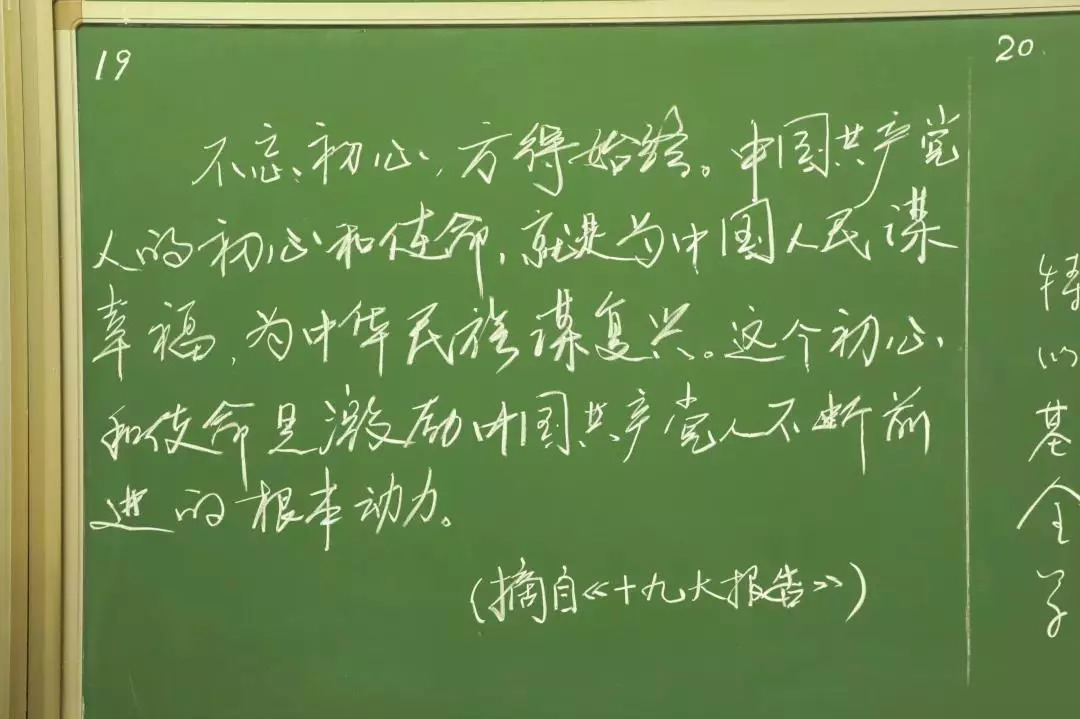 19
不忘初心，方得始终。中国共产党
人的初心和使命，就是为中国人民谋
幸福，为中华民族谋复兴。这个初心
和使命是激励中国共产党人不断前
进的根本动力。
（摘自《十九大报告》）
20.
特
的
基
全
学